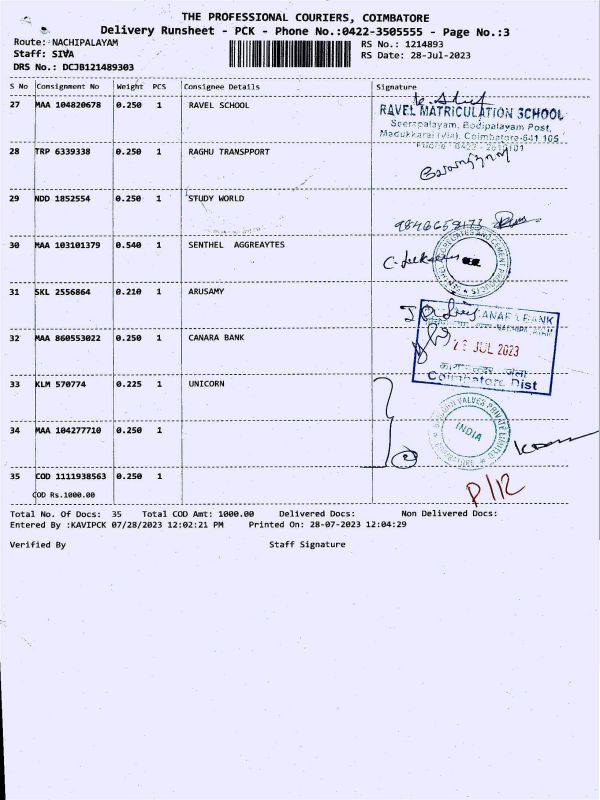 THE PROFESSIONAL COURIERS, COIMBATORE
Delivery Runsheet - PCK - Phone No.:0422-3505555 - Page No.:3
Route: NACHIPALAYAM
RS No.: 1214893
Staff: SIVA
RS Date: 28-Jul-2023
DRS No.: DCJB121489303
S No Consignment No Weight PCS Consignee Details Signature
27 MAA 104820678 0.250 1 RAVEL SCHOOL
RAVEL MATRICULATION SCHOOL
Seerapalayam, Bodipalayam Post,
Madukkarai (Via), Coimbatore-641 105
28 TRP 6339338 0.250 1 RAGHU TRANSPPORT
29 NDD 1852554 0.250 1 STUDY WORLD
30 MAA 103101379 0.540 1 SENTHEL AGGREAYTES
31 SKL 2556864 0.210 1 ARUSAMY
32 MAA 860553022 0.250 1 CANARA BANK
JUL 2023
Coimbatore Dist
33 KLM 570774 0.225 1 UNICORN
INDIA
34 MAA 104277710 0.250 1
35 COD 1111938563 0.250 1
COD Rs.1000.00
P/12
Total No. Of Docs: 35 Total COD Amt: 1000.00 Delivered Docs: Non Delivered Docs:
Entered By :KAVIPCK 07/28/2023 12:02:21 PM Printed On: 28-07-2023 12:04:29
Verified By Staff Signature